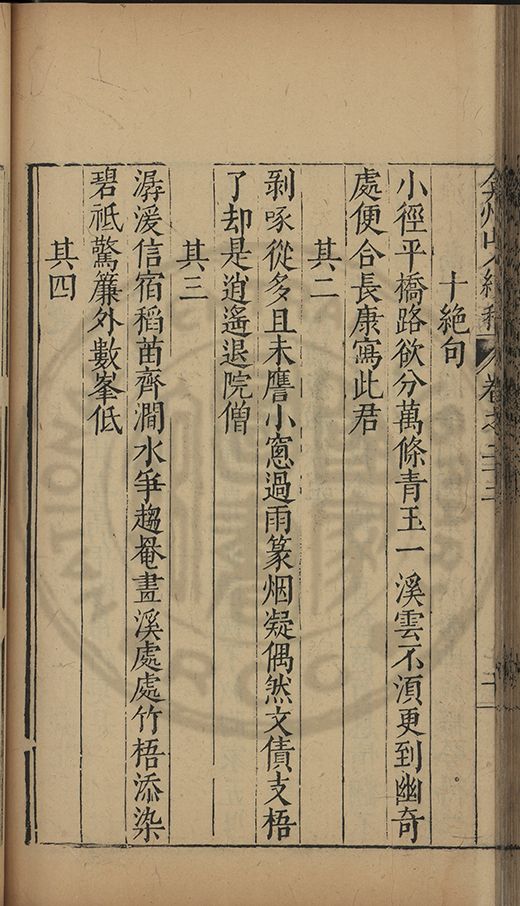 十絶句
小徑平橋路欲分萬條青玉一溪雲不湏更到幽奇
處便合長康寫此君
其二
剥啄從多且未譍小窻過雨篆烟凝偶然文債支梧
了却是逍遙退院僧
其三
潺湲信宿稻苗齊澗水爭趨罨畫溪處處竹梧添染
碧祗驚簾外數峯低
其四